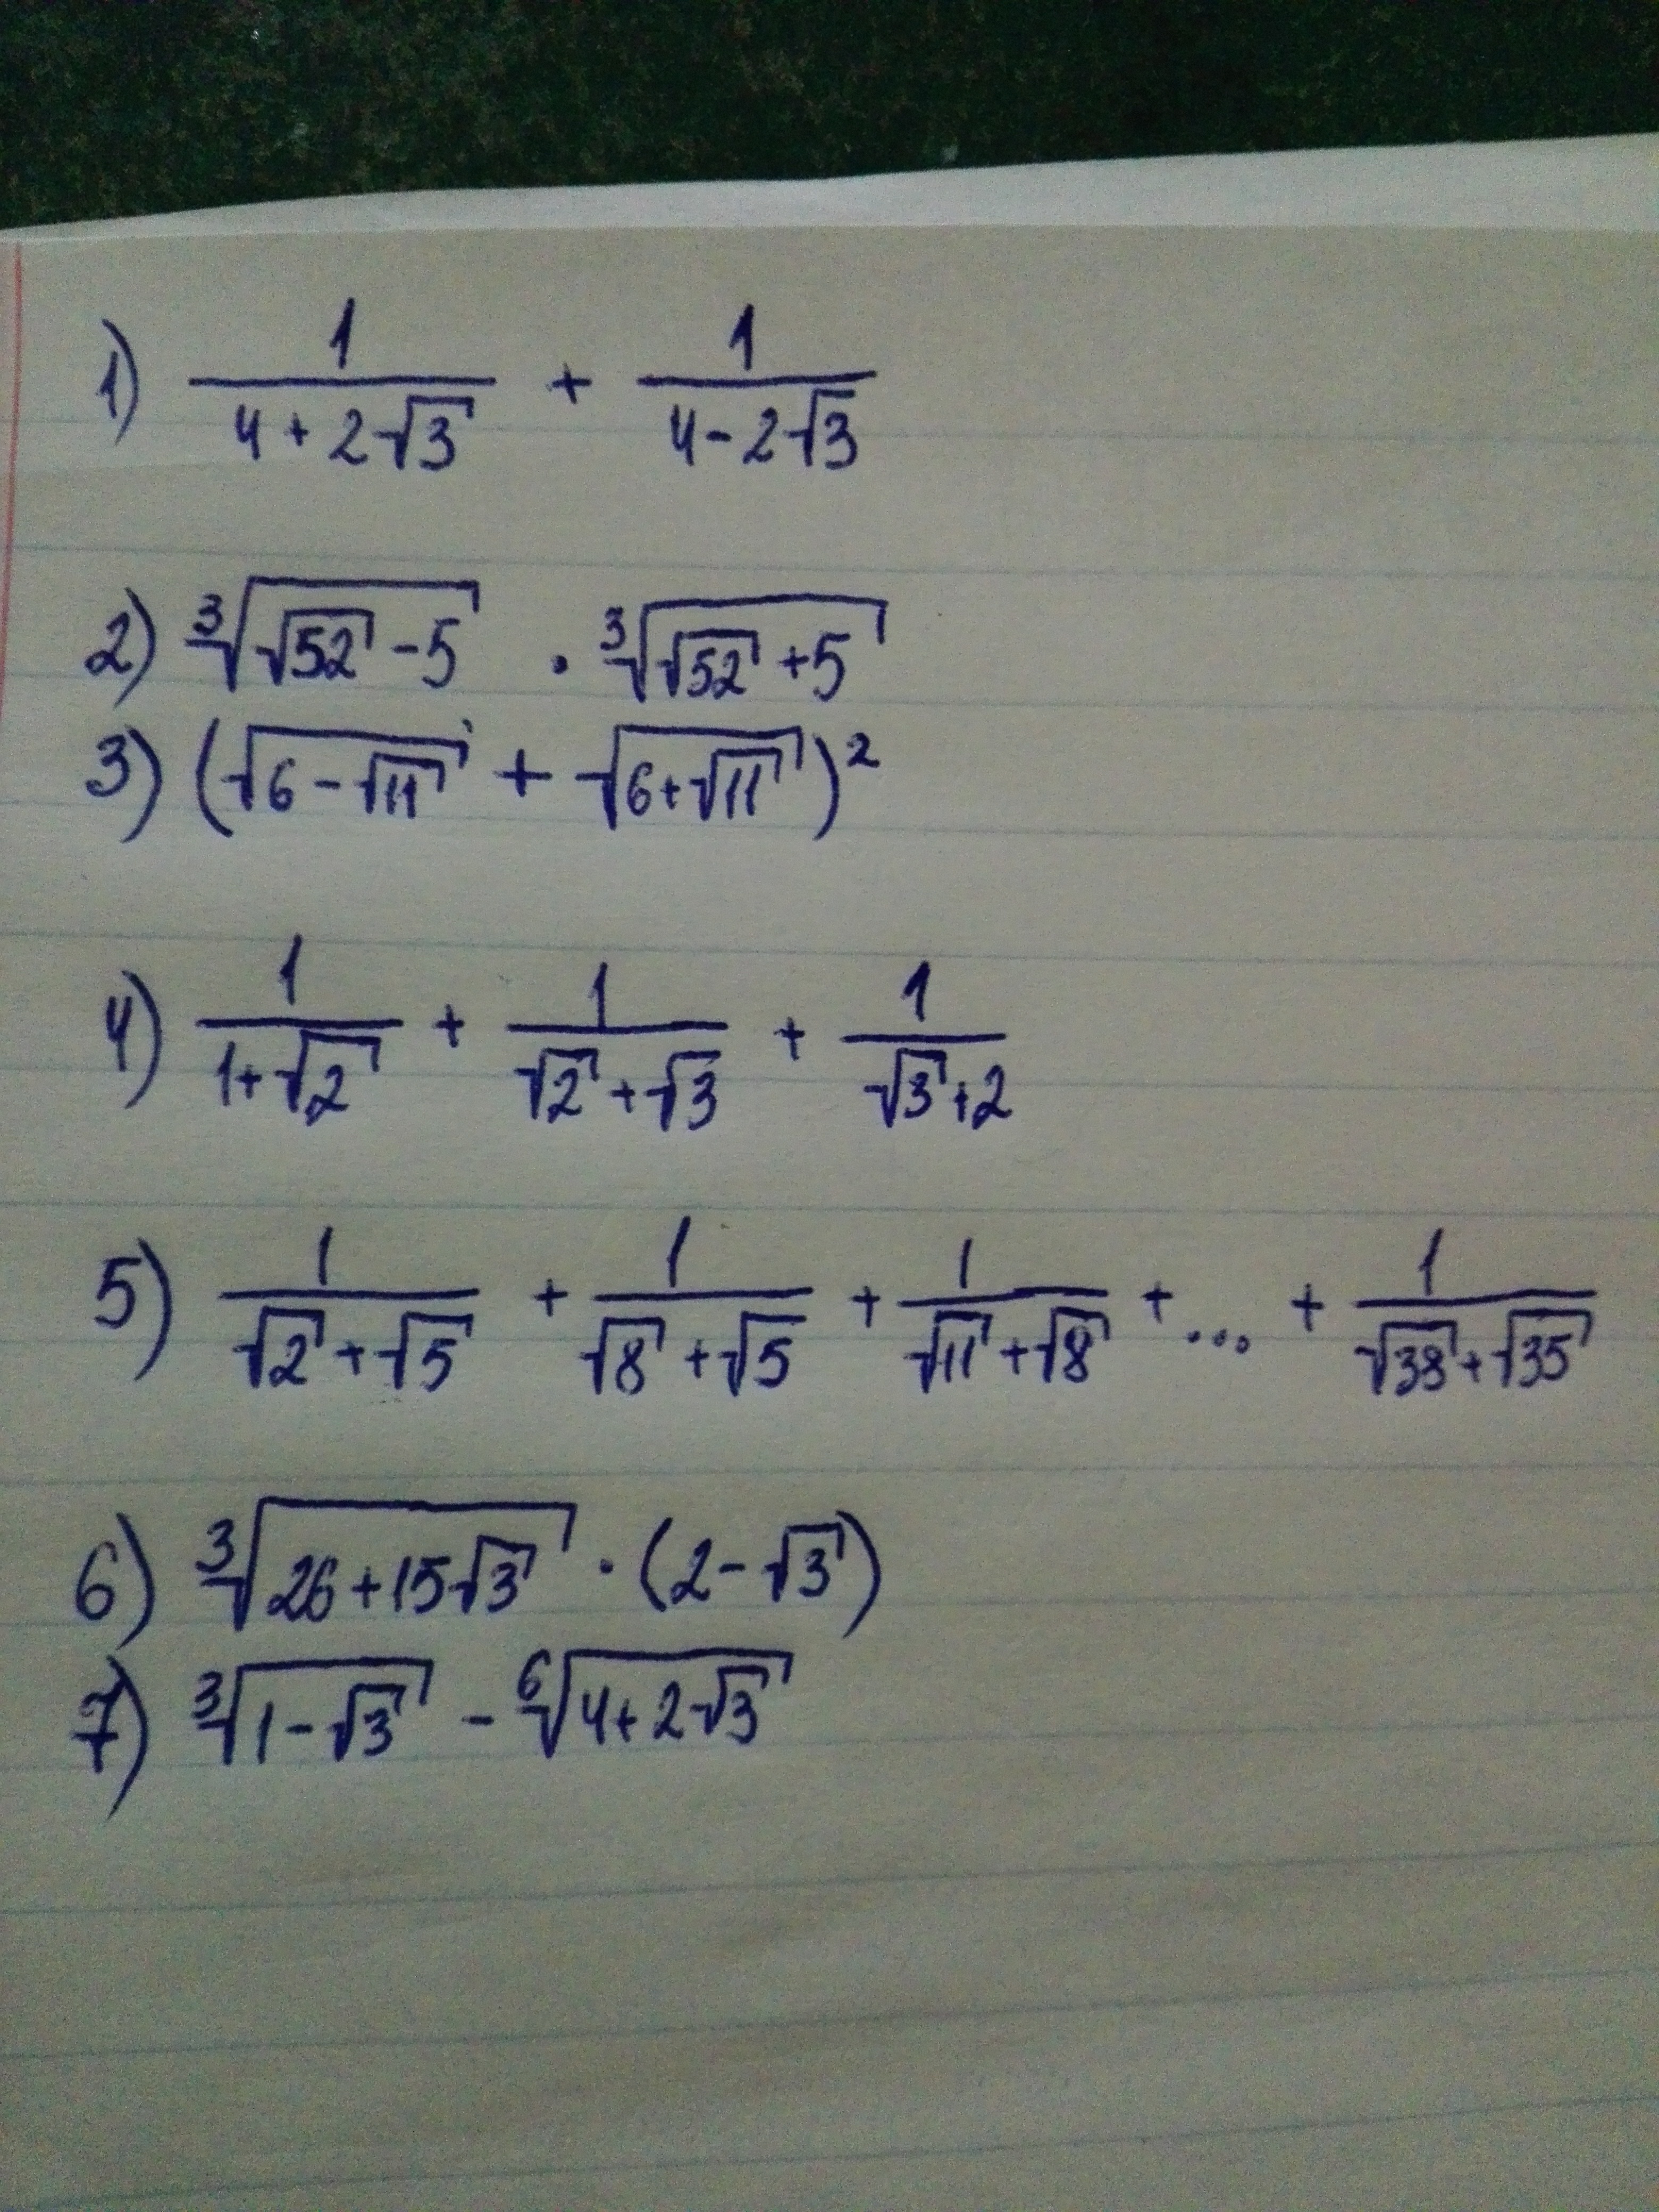 1) \frac{1}{4+2\sqrt{3}} + \frac{1}{4-2\sqrt{3}}
2) \sqrt[3]{\sqrt{52}-5} \cdot \sqrt[3]{\sqrt{52}+5}
3) (\sqrt{6-\sqrt{11}} + \sqrt{6+\sqrt{11}})^2
4) \frac{1}{1+\sqrt{2}} + \frac{1}{\sqrt{2}+\sqrt{3}} + \frac{1}{\sqrt{3}+2}
5) \frac{1}{\sqrt{2}+\sqrt{5}} + \frac{1}{\sqrt{8}+\sqrt{5}} + \frac{1}{\sqrt{11}+\sqrt{8}} + ... + \frac{1}{\sqrt{38}+\sqrt{35}}
6) \sqrt[3]{26+15\sqrt{3}} \cdot (2-\sqrt{3})
7) \sqrt[3]{1-\sqrt{3}} - \sqrt[6]{4+2\sqrt{3}}